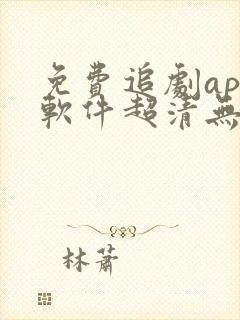 免費追劇ap
軟件超清無
林蕭